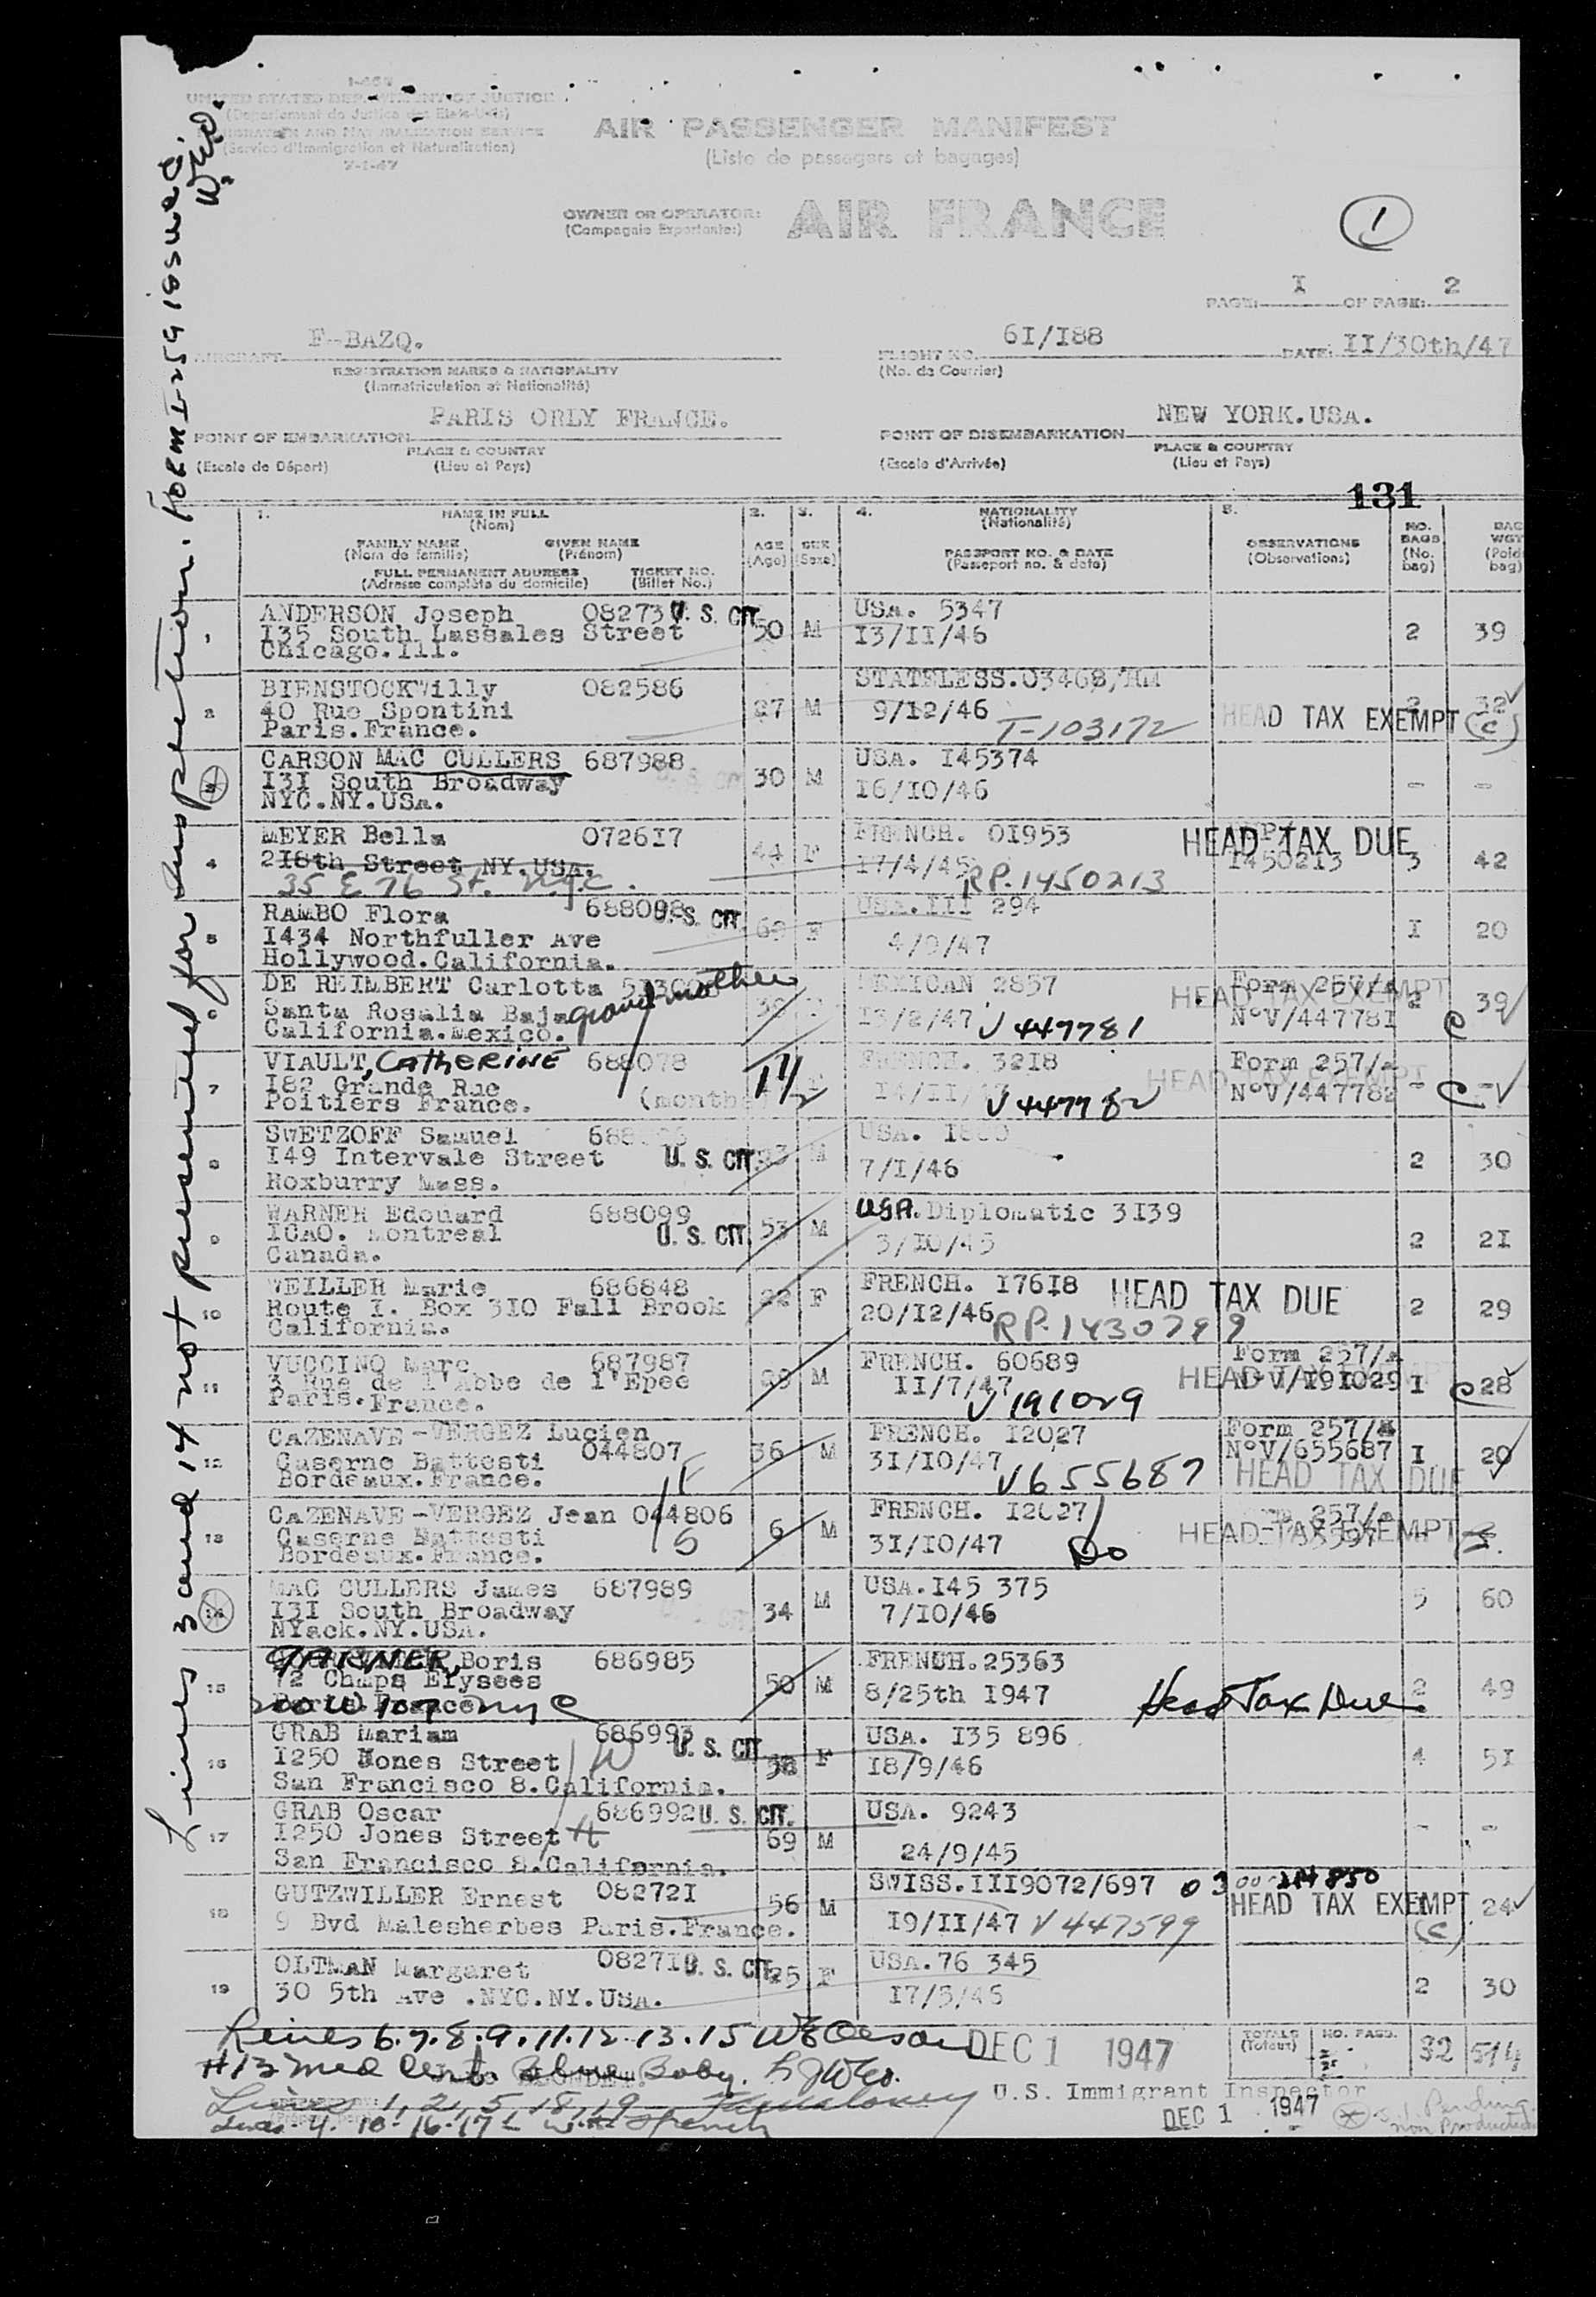 I-466
UNITED STATES DEPARTMENT OF JUSTICE
(Departement de Justice des Etats-Unis)
IMMIGRATION AND NATURALIZATION SERVICE
(Service d'Immigration et Naturalisation)
7-1-47
AIR PASSENGER MANIFEST
(Liste de passagers et bagages)
OWNER OR OPERATOR:
(Compagnie Exportante:)
AIR FRANCE
1
PAGE: I OF PAGE: 2
AIRCRAFT F-BAZQ.
REGISTRATION MARKS & NATIONALITY
(Immatriculation et Nationalité)
FLIGHT NO. 6I/I88 DATE: II/30th/47
(No. de Courrier)
POINT OF EMBARKATION PARIS ORLY FRANCE.
PLACE & COUNTRY
(Escale de Départ) (Lieu et Pays)
POINT OF DISEMBARKATION NEW YORK.USA.
PLACE & COUNTRY
(Escale d'Arrivée) (Lieu et Pays)
131
1. NAME IN FULL
(Nom)
FAMILY NAME GIVEN NAME
(Nom de famille) (Prénom)
FULL PERMANENT ADDRESS TICKET NO.
(Adresse complète du domicile) (Billet No.)
2. AGE (Age)
3. SEX (Sexe)
4. NATIONALITY
(Nationalité)
PASSPORT NO. & DATE
(Passeport no. & date)
5. OBSERVATIONS
(Observations)
NO. BAGS (No. bag)
BAG WGT (Poid bag)
1 ANDERSON Joseph 08273 U. S. CIT. 50 M USA. 5347 2 39
I35 South Lassales Street I3/II/46
Chicago.Ill.
2 BIENSTOCK Willy 082586 27 M STATELESS.03468/AM 2 32
40 Rue Spontini 9/12/46 T-103172 HEAD TAX EXEMPT (C)
Paris.France.
3 CARSON MAC CULLERS 687988 30 M USA. I45374 - -
I3I South Broadway I6/I0/46
NYC.NY.USA.
4 MEYER Bella 0726I7 44 F FRENCH. 0I953 HEAD TAX DUE 3 42
2I8th Street NY.USA. I7/4/45 RP.1450213 I4502I3
35 E 76 St. nyc.
5 RAMBO Flora 688098 U. S. CIT. 69 F USA.III 294 I 20
I434 Northfuller Ave 4/9/47
Hollywood.California.
6 DE REIMBERT Carlotta grandmother MEXICAN 2857 Form 257/a 2 39
Santa Rosalia Baja I3/2/47 V 447781 N°V/44778I HEAD TAX EXEMPT C
California.Mexico.
7 VIAULT, CATHERINE 688078 1 1/2 F FRENCH. 32I8 Form 257/a - -
I82 Grande Rue V 447782 N°V/447782 HEAD TAX EXEMPT C
Poitiers France. (months
8 SWETZOFF Samuel U. S. CIT. M USA. 2 30
I49 Intervale Street 7/I/46
Roxburry Mass.
9 WARNER Edouard 688099 U. S. CIT. 53 M USA.Diplomatic 3I39 2 2I
ICAO. Montreal 3/I0/45
Canada.
10 WEILLER Marie 686848 22 F FRENCH. I76I8 HEAD TAX DUE 2 29
Route I. Box 3I0 Fall Brook 20/I2/46 RP.1430799
California.
11 VUCCINO Marc 687987 28 M FRENCH. 60689 Form 257/a I 28
3 Rue de l'Abbe de l'Epee II/7/47 V 191029 N°V/I9I029 C
Paris.France.
12 CAZENAVE-VERGEZ Lucien 044807 36 M FRENCH. I2027 Form 257/a I 20
Caserne Battesti 3I/I0/47 V655687 N°V/655687 HEAD TAX DUE
Bordeaux.France.
13 CAZENAVE-VERGEZ Jean 044806 6 M FRENCH. I2027 257/a
Caserne Battesti 3I/I0/47 Do HEAD TAX EXEMPT
Bordeaux.France.
14 MAC CULLERS James 687989 34 M USA.I45 375 5 60
I3I South Broadway 7/I0/46
NYack.NY.USA.
15 GARNER, Boris 686985 50 M FRENCH.25363 2 49
72 Chmps Elysees 8/25th I947 Head Tax Due
Paris.France
16 GRAB Mariam 686993 W U. S. CIT. F USA. I35 896 4 5I
I250 Jones Street I8/9/46
San Francisco 8.California.
17 GRAB Oscar 686992 H U. S. CIT. 69 M USA. 9243 - -
I250 Jones Street 24/9/45
San Francisco 8.California.
18 GUTZWILLER Ernest 08272I 56 M SWISS.III9072/697 24
9 Bvd Malesherbes Paris.France. I9/II/47 V 447599 HEAD TAX EXEMPT (C)
19 OLTMAN Margaret 0827I U. S. CIT. 25 F USA.76 345 2 30
30 5th Ave .NYC.NY.USA. I7/5/46
TOTALS (Totaux) NO. PASS. 32 514
Lines 6.7.8.9.11.12.13.15
DEC 1 1947
#13 med cert. Baby.
Lines 1, 2, 5, 18, 19
U.S. Immigrant Inspector
Lines 4. 10. 16. 17
DEC 1 1947
Pending
non Production
Lines 3 and 14 not presented for inspection. FORM I-259 issued.